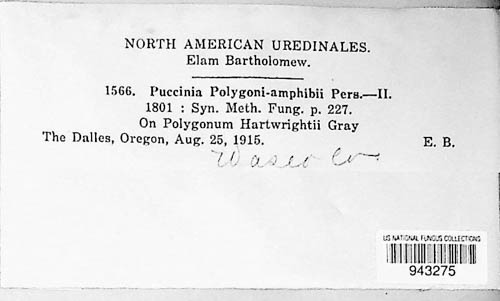 NORTH AMERICAN UREDINALES.
Elam Bartholomew.
1566. Puccinia Polygoni-amphibii Pers.—II.
1801 : Syn. Meth. Fung. p. 227.
On Polygonum Hartwrightii Gray
The Dalles, Oregon, Aug. 25, 1915. E. B.
Wasco Co
US NATIONAL FUNGUS COLLECTIONS
943275